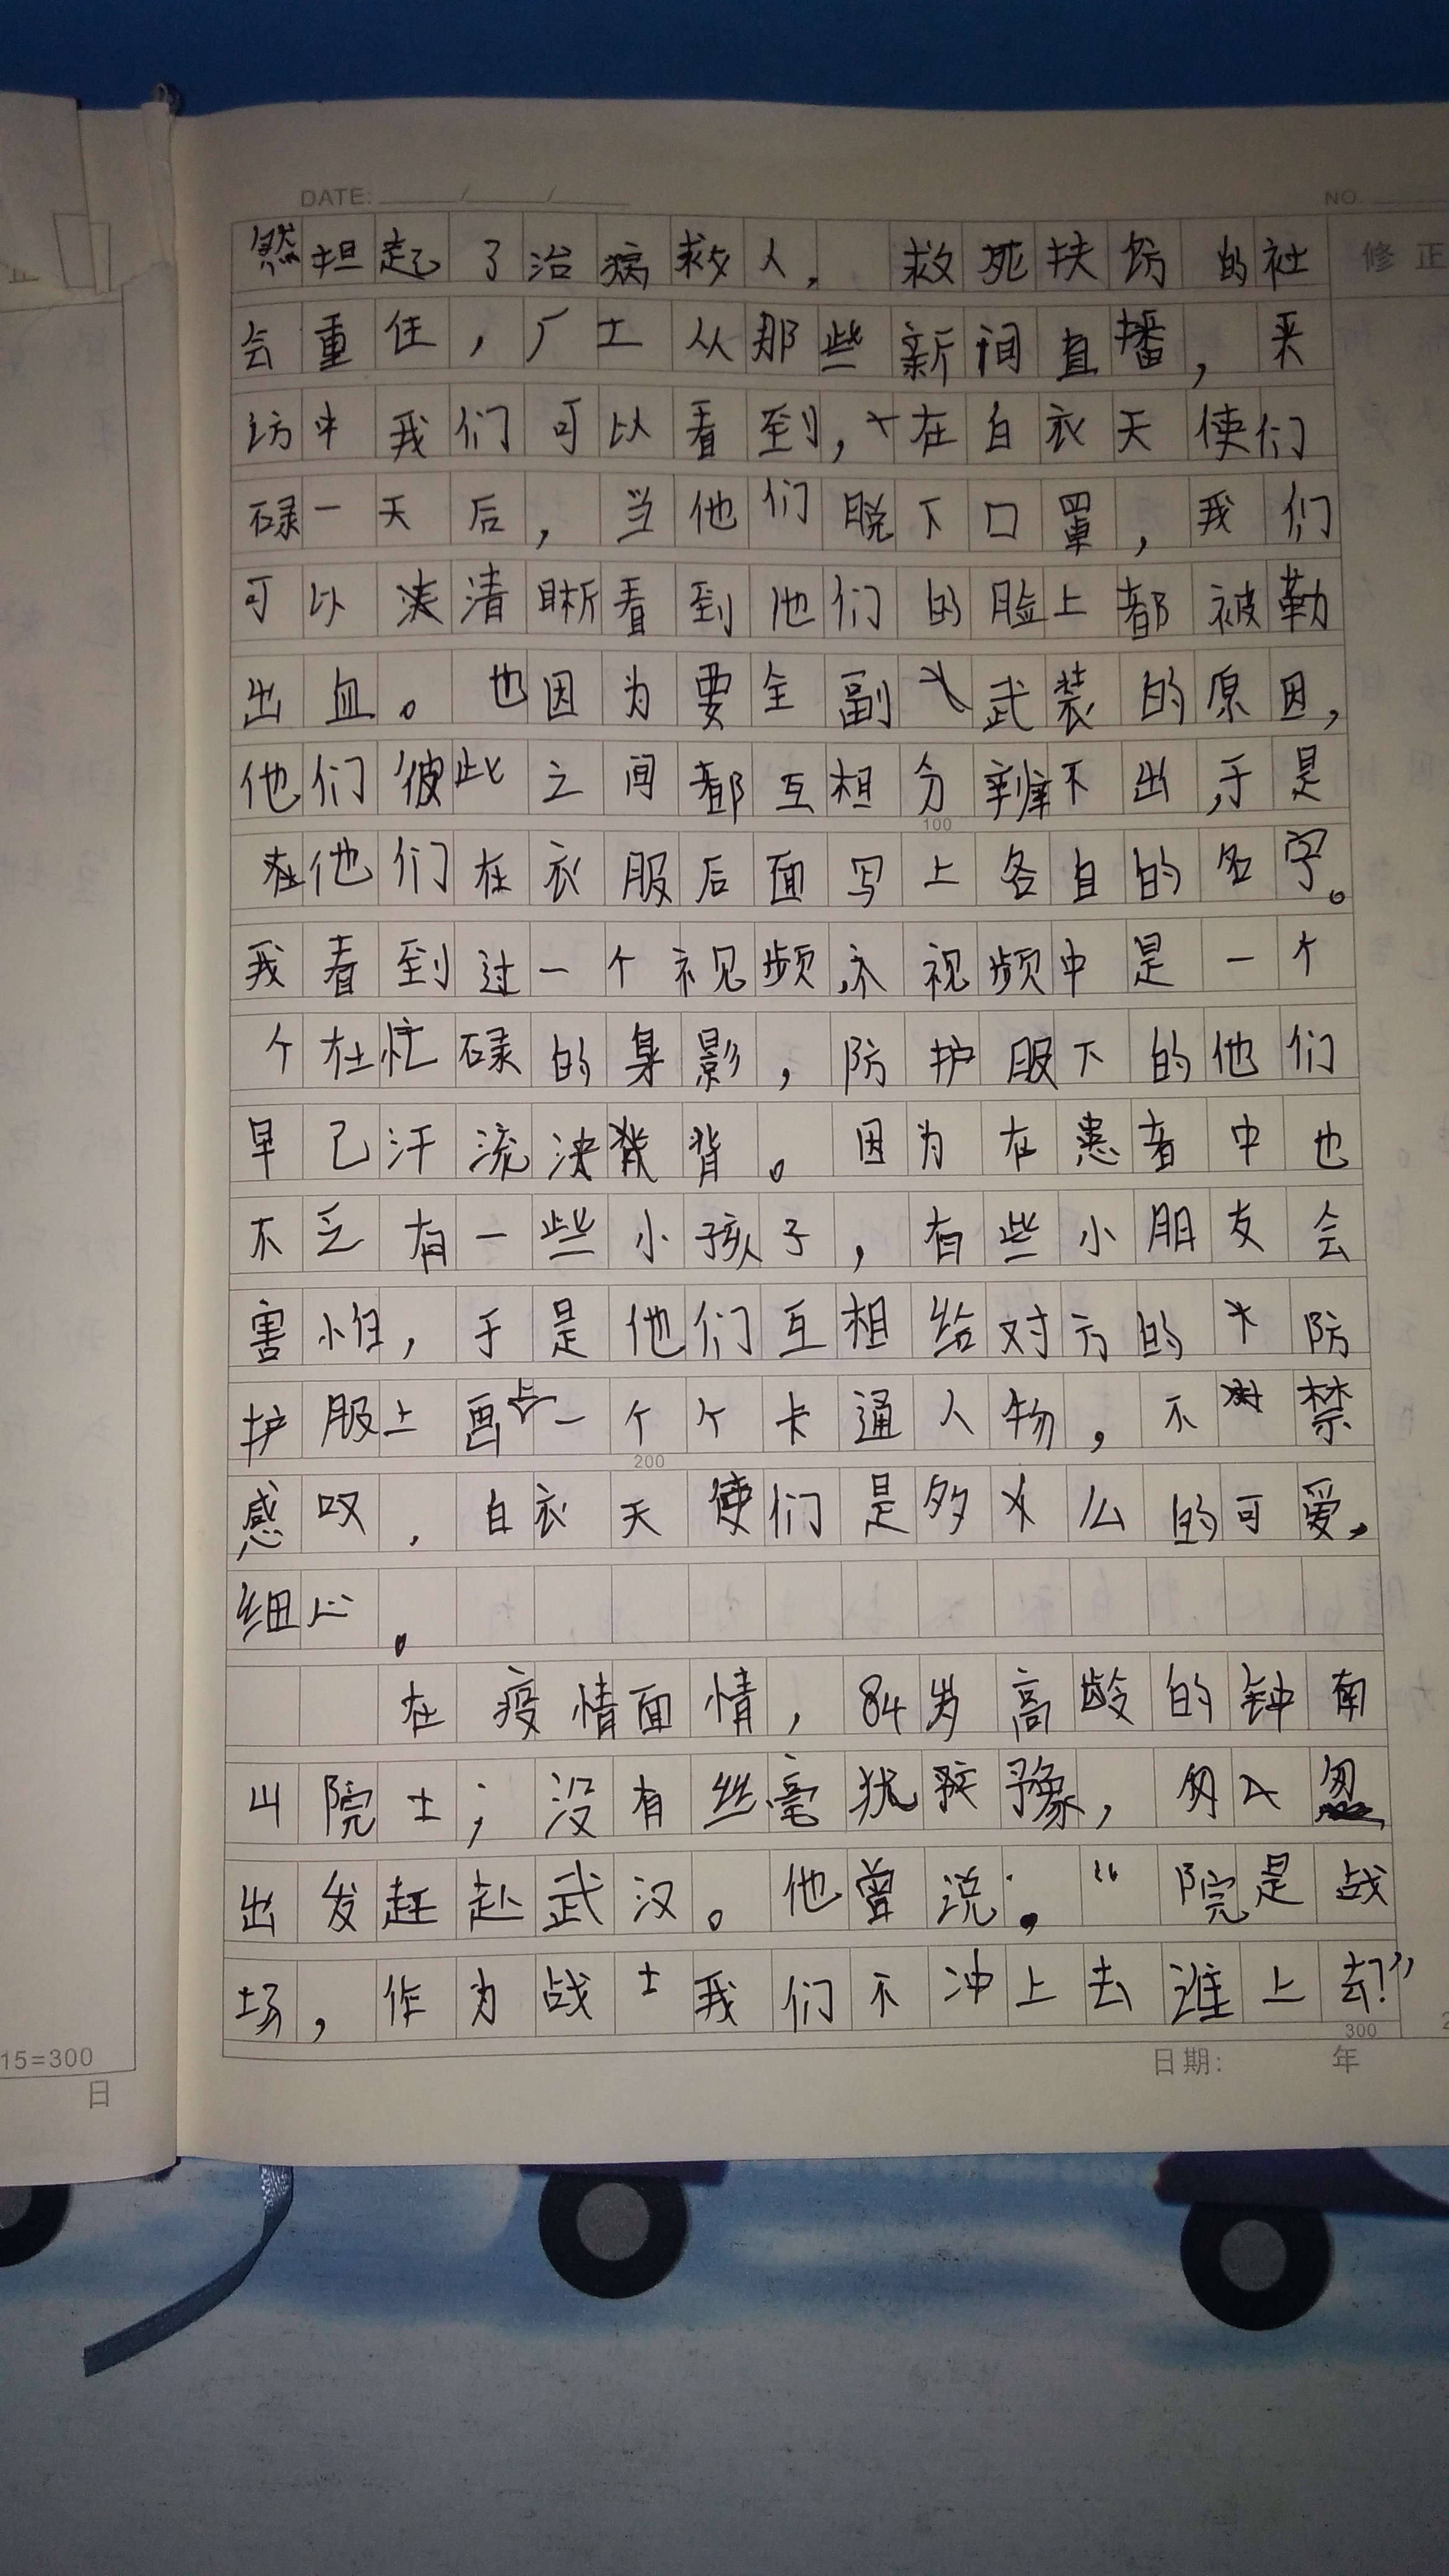 DATE: / /
NO.
修正
然担起了治病救人,救死扶伤的社
会重任,广士从那些新闻直播,采
访中我们可以看到,在白衣天使们
碌一天后,当他们脱下口罩,我们
可以清晰看到他们的脸上都被勒
出血。也因为要全副武装的原因,
他们彼此之间都互相分辨不出,于是
在他们在衣服后面写上各自的名字。
我看到过一个视频,视频中是一个
个在忙碌的身影,防护服下的他们
早已汗流浃背。因为在患者中也
不乏有一些小孩子,有些小朋友会
害怕,于是他们互相给对方的防
护服上画上一个个卡通人物,不禁
感叹,白衣天使们是多么的可爱,
细心。
在疫情面情,84岁高龄的钟南
山院士;没有丝毫犹豫,匆匆
出发赶赴武汉。他曾说:“院是战
场,作为战士我们不冲上去谁上去?”
100
200
300
日期: 年
15=300
日